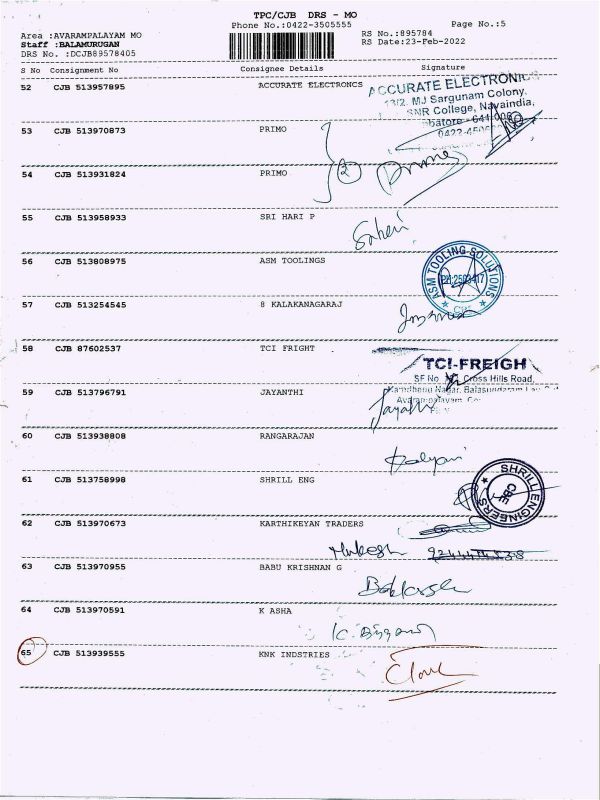 TPC/CJB DRS - MO
Phone No.:0422-3505555
Page No.:5
Area :AVARAMPALAYAM MO
Staff :BALAMURUGAN
DRS No. :DCJB89578405
RS No.:895784
RS Date:23-Feb-2022
S No Consignment No Consignee Details Signature
52 CJB 513957895 ACCURATE ELECTRONCS
ACCURATE ELECTRONICS
13/2, MJ Sargunam Colony,
SNR College, Navaindia,
53 CJB 513970873 PRIMO
54 CJB 513931824 PRIMO
2
55 CJB 513958933 SRI HARI P
56 CJB 513808975 ASM TOOLINGS
ASM TOOLING SOLUTIONS
57 CJB 513254545 8 KALAKANAGARAJ
58 CJB 87602537 TCI FRIGHT
TCI-FREIGH
SF No Cross Hills Road,
59 CJB 513796791 JAYANTHI
Jayanthi
60 CJB 513938808 RANGARAJAN
Kalyani
61 CJB 513758998 SHRILL ENG
SHRILL ENGINEERS
CBE
62 CJB 513970673 KARTHIKEYAN TRADERS
Mukesh
63 CJB 513970955 BABU KRISHNAN G
64 CJB 513970591 K ASHA
65 CJB 513939555 KNK INDSTRIES